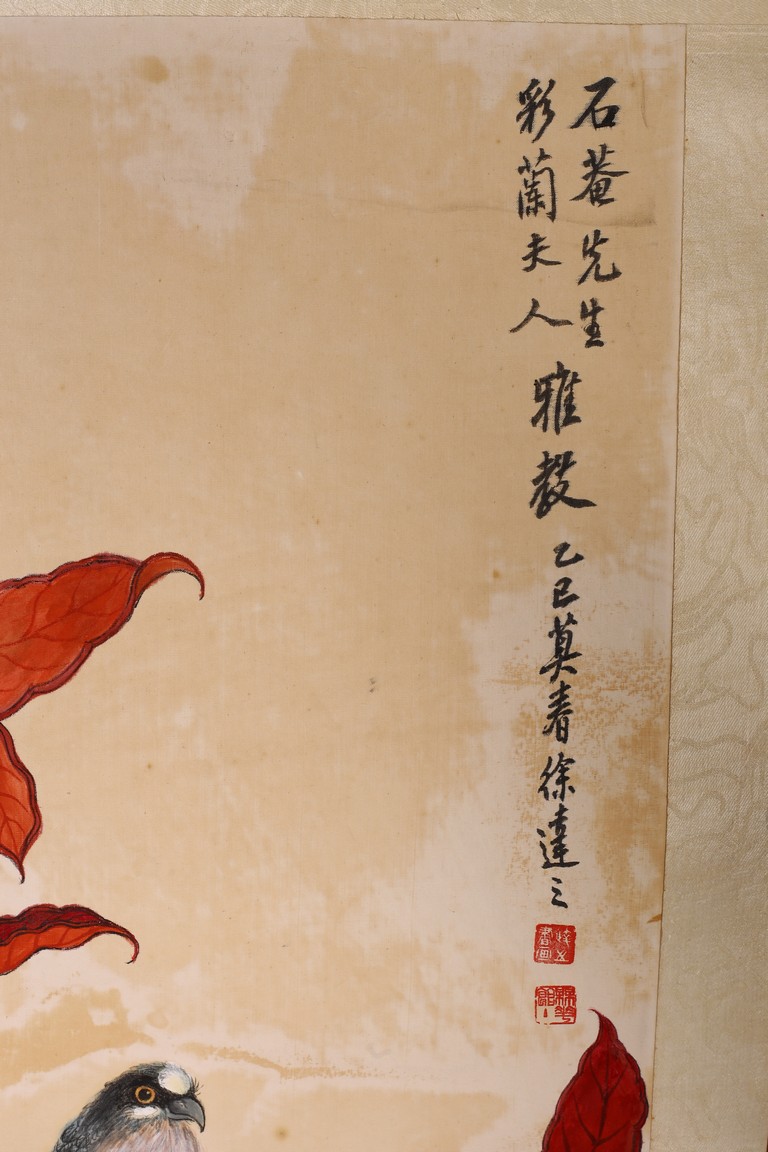 石菴先生
彩蘭夫人
雅教
乙巳莫春徐達之